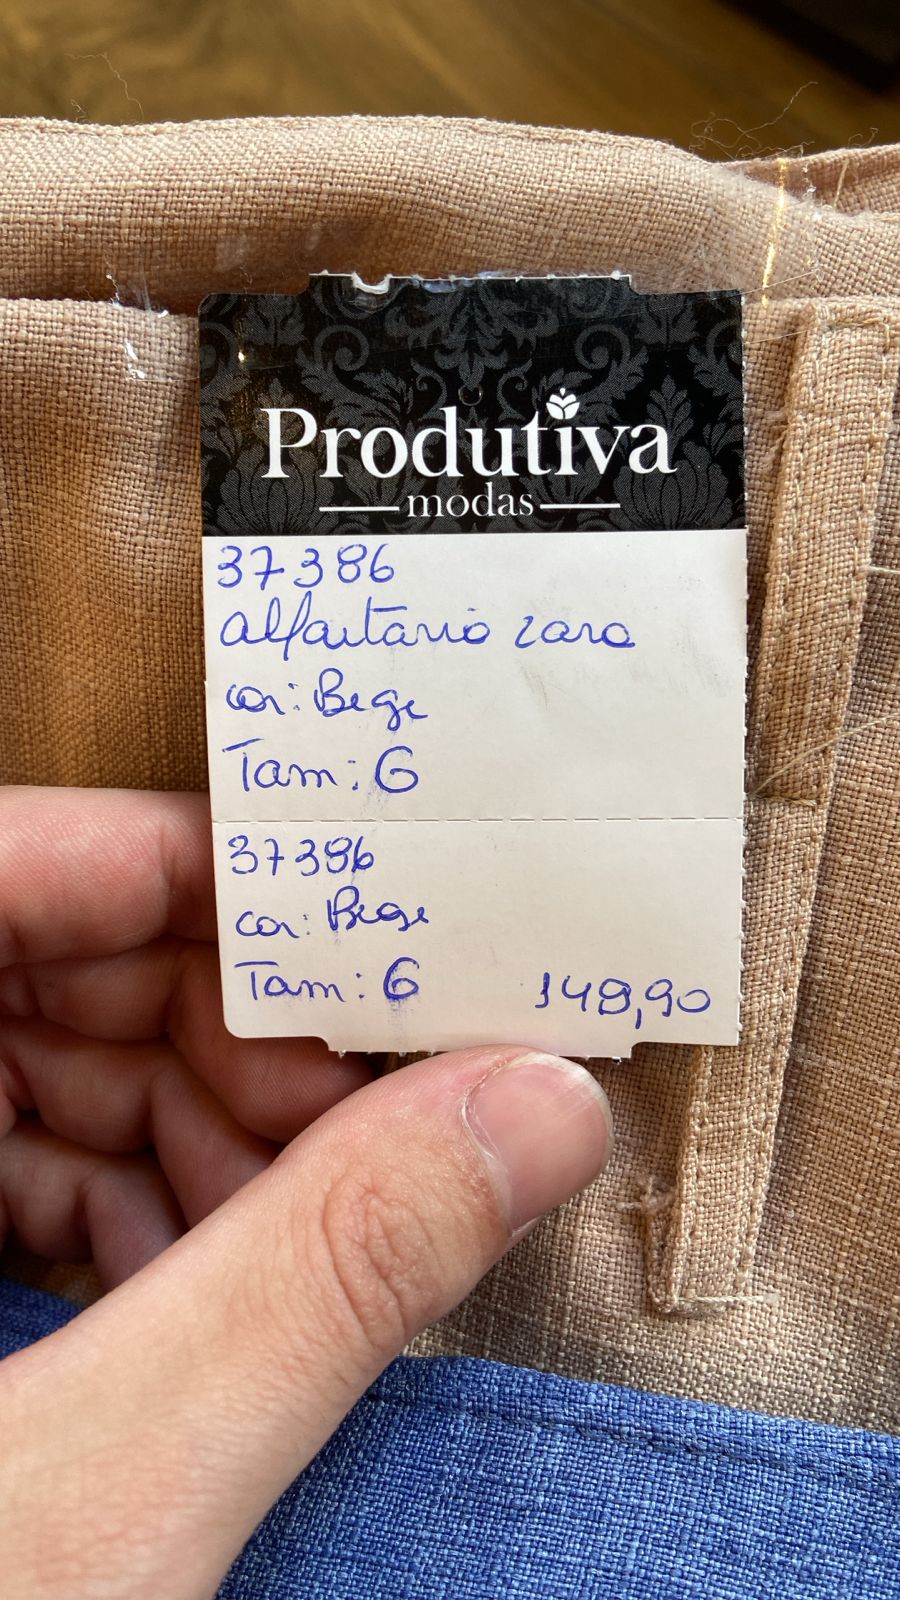 Produtiva
modas
37386
alfaitario zara
cor: Bege
Tam: G
37386
cor: Bege
Tam: G 149,90